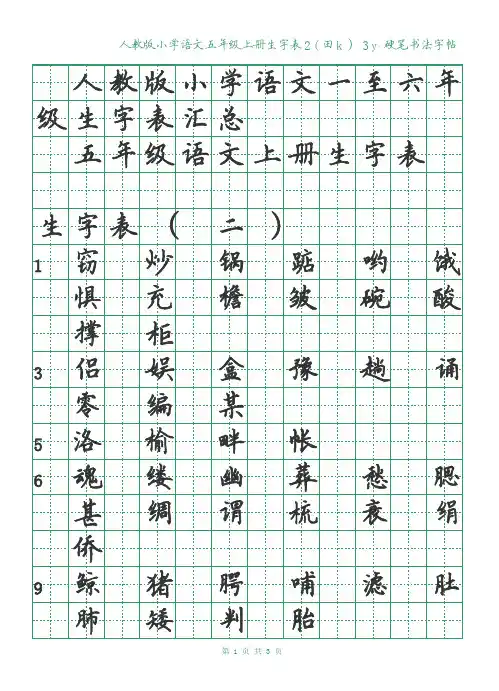 人教版小学语文五年级上册生字表2(田k) 3y 硬笔书法字帖
人教版小学语文一至六年
级生字表汇总
五年级语文上册生字表
生字表（二）
1 窃 炒 锅 踮 哟 饿
惧 充 檐 皱 碗 酸
撑 柜
3 侣 娱 盒 豫 趟 诵
零 编 某
5 洛 榆 畔 帐
6 魂 缕 幽 葬 愁 腮
甚 绸 谓 梳 衰 绢
侨
9 鲸 猪 腭 哺 滤 肚
肺 矮 判 胎
第 1 页 共 3 页